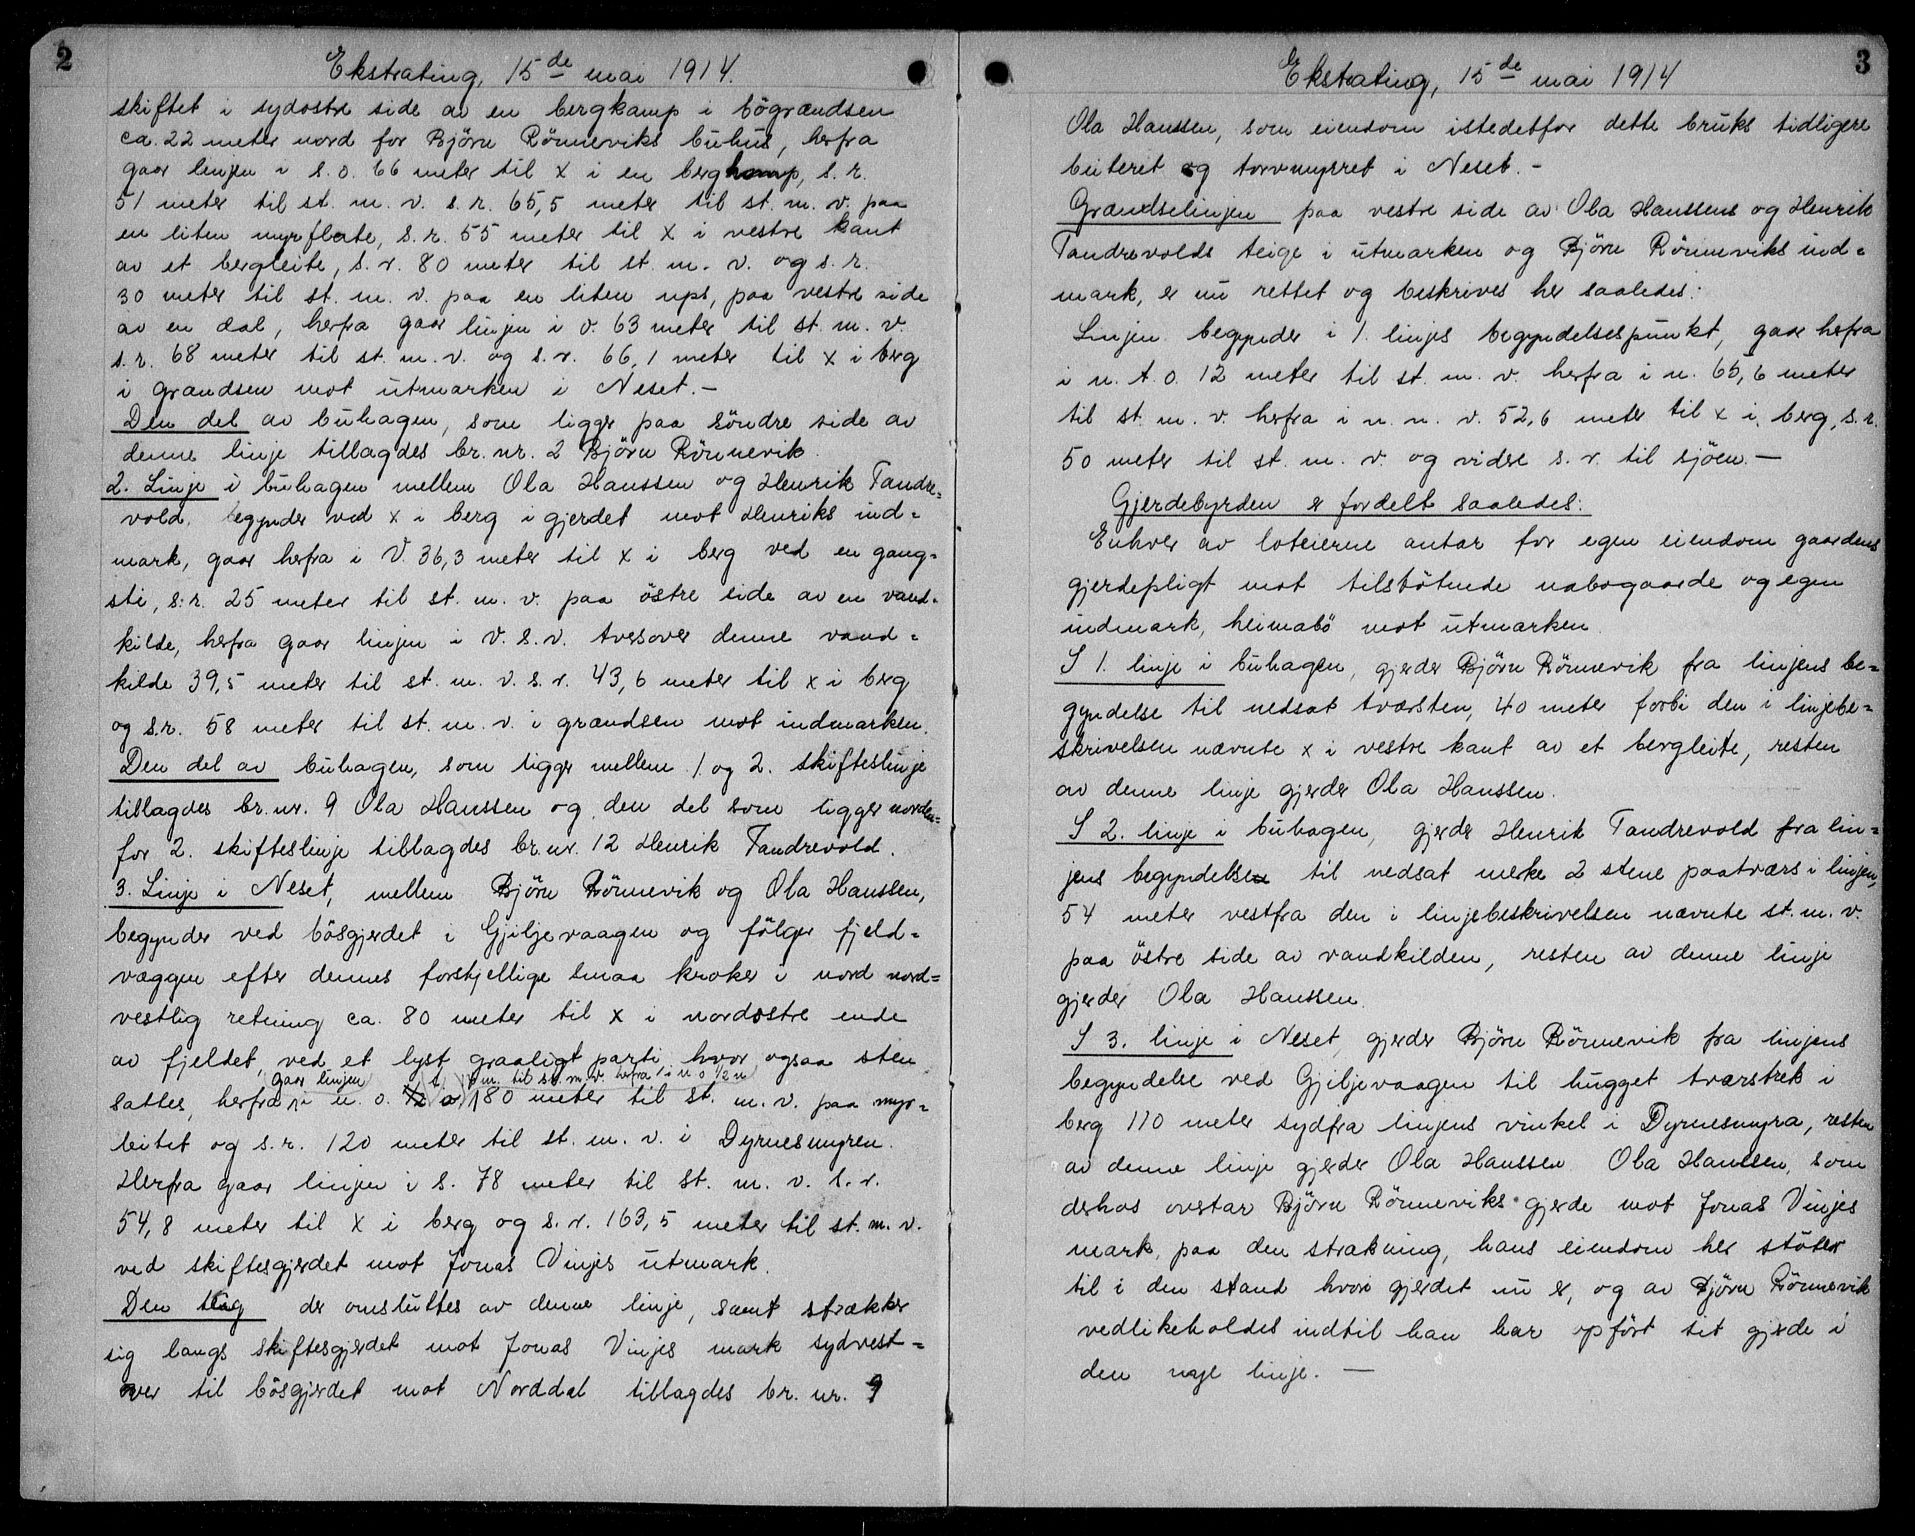 2
Ekstrating, 15de mai 1914.
skiftet i sydostre side av en bergkamp i bögrændsen
ca. 22 meter nord for Björn Rönneviks buhus, herfra
gaar linjen i s.o. 66 meter til x i en bergkamp, s.r.
51 meter til st. m. v. s.r. 65,5 meter til st. m. v. paa
en liten myrflate, s.r. 55 meter til x i vestre kant
av et bergleite, s.r. 80 meter til st. m. v. og s.r.
30 meter til st. m. v. paa en liten ups, paa vestre side
av en dal, herfra gaar linjen i o. 63 meter til st. m. v.
s.r. 68 meter til st. m. v. og s.r. 66,1 meter til x i berg
i grændsen mot utmarken i Neset.-
Den del av buhagen, som ligger paa söndre side av
denne linje tillagdes br. nr. 2 Björn Rönnevik.
2. Linje i buhagen mellem Ola Hanssen og Henrik Tandre=
vold. begynder ved x i berg i gjerdet mot Henriks ind=
mark, gaar herfra i V. 36,3 meter til x i berg ved en gang=
sti, s.r. 25 meter til st. m. v. paa östre side av en vand=
kilde, herfra gaar linjen i V.s.v. tversover denne vand=
kilde 39,5 meter til st. m. v. s.r. 43,6 meter til x i berg
og s.r. 58 meter til st. m. v. i grændsen mot indmarken.
Den del av buhagen, som ligger mellem 1. og 2. skifteslinje
tillagdes br. nr. 9 Ola Hanssen og den del som ligger norden=
for 2. skifteslinje tillagdes br. nr. 12 Henrik Tandrevold.
3. Linje i Neset, mellem Björn Rönnevik og Ola Hanssen,
begynder ved bösgjerdet i Gjiljevaagen og fölger fjeld=
væggen efter dennes forskjellige smaa kroker i nord nord=
vestlig retning ca. 80 meter til x i nordostre ende
av fjeldet, ved et lyst graaligt parti, hvor ogsaa sten
gaar linjen m. til st. m. v. herfra i n o ½ n
sattes, herfra i n. o. 180 meter til st. m. v. paa myr=
leitet og s.r. 120 meter til st. m. v. i Dyrnesmyren.
Herfra gaar linjen i s. 78 meter til st. m. v. s.r.
54,8 meter til x i berg og s.r. 163,5 meter til st. m. v.
ved skiftesgjerdet mot Jonas Vinjes utmark.
Den teig der omsluttes av denne linje, samt strækker
sig langs skiftesgjerdet mot Jonas Vinjes mark sydvest=
over til bösgjerdet mot Norddal tillagdes br. nr. 9
3
Ekstrating, 15de mai 1914
Ola Hanssen, som eiendom istedetfor dette bruks tidligere
buteret og torvmyrret i Neset.-
Grændselinjen paa vestre side av Ola Hanssens og Henrik
Tandrevolds teige i utmarken og Björn Rönneviks ind=
mark, er nu rettet og beskrives her saaledes:
Linjen begynder i 1. linjes begyndelsespunkt, gaar herfra
i n. t. o. 12 meter til st. m. v. herfra i n. 65,6 meter
til st. m. v. herfra i n. n. v. 52,6 meter til x i berg, s.r.
50 meter til st. m. v. og videre s.r. til sjöen.-
Gjerdebyrden er fordelt saaledes:
Enhver av loteierne antar for egen eiendom gaardens
gjerdepligt mot tilstötende nabogaarde og egen
indmark, heimabö mot utmarken.
I 1. linje i buhagen, gjerder Björn Rönnevik fra linjens be=
gyndelse til nedsat tværsten, 40 meter forbi den i linjebe=
skrivelsen nævnte x i vestre kant av et bergleite, resten
av denne linje gjerder Ola Hanssen.
I 2. linje i buhagen, gjerder Henrik Tandrevold fra lin=
jens begyndelse til nedsat merke 2 stene paatværs i linjen,
54 meter vestfra den i linjebeskrivelsen nævnte st. m. v.
paa östre side av vandkilden, resten av denne linje
gjerder Ola Hanssen.
I 3. linje i Neset, gjerder Björn Rönnevik fra linjens
begyndelse ved Gjiljevaagen til hugget tværstrek i
berg 110 meter sydfra linjens vinkel i Dyrnesmyra, resten
av denne linje gjerder Ola Hanssen. Ola Hanssen, som
derhos overtar Björn Rönneviks gjerde mot Jonas Vinjes
mark, paa den strækning, hans eiendom her stöter
til i den stand hvori gjerdet nu er, og av Björn Rönnevik
vedlikeholdes indtil han har opfört sit gjerde i
den nye linje. —